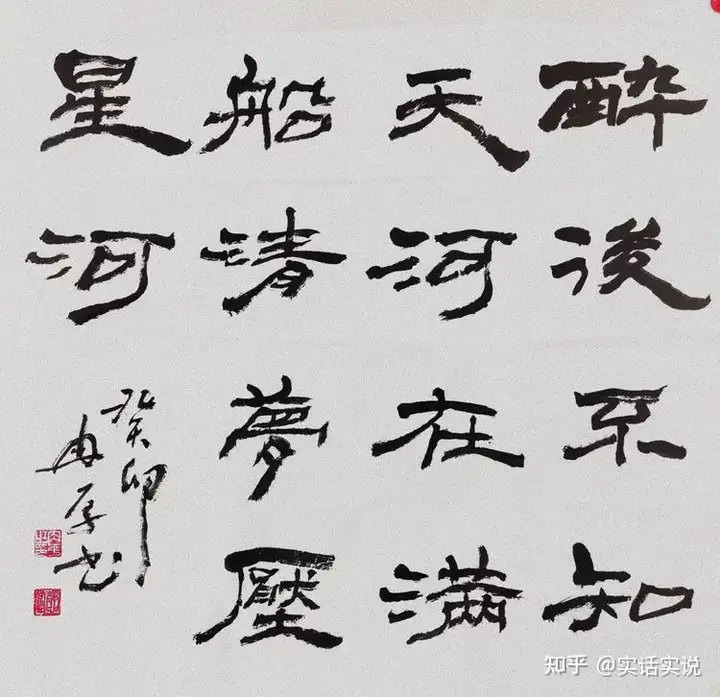 醉後不知
天河在滿
船清夢壓
星河
癸卯
书
知乎 @实话实说